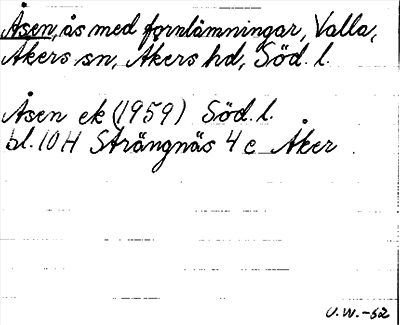 Åsen, ås med fornlämningar, Valla,
Åkers sn, Åkers hd, Söd. l.
Åsen ek (1959) Söd. l.
bl. 10 H Strängnäs 4 c Åker
U.W.-62